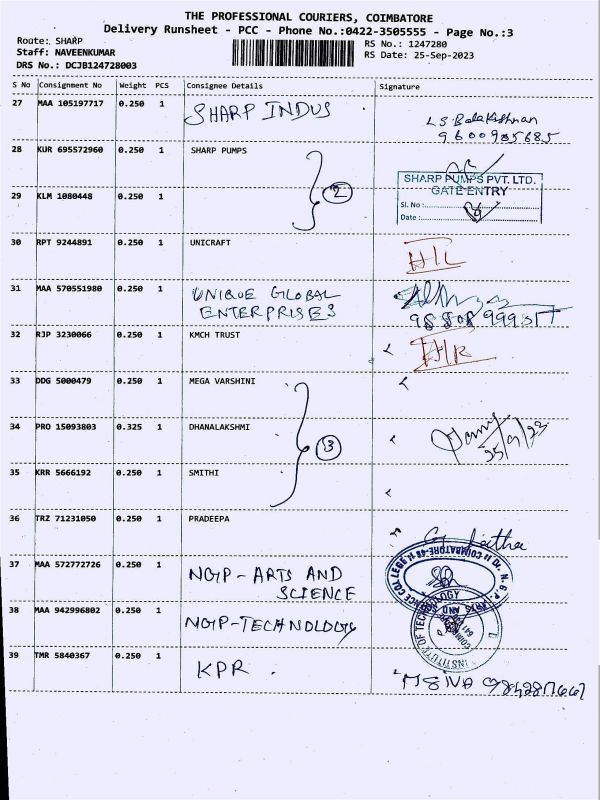 THE PROFESSIONAL COURIERS, COIMBATORE
Delivery Runsheet - PCC - Phone No.:0422-3505555 - Page No.:3
Route: SHARP
Staff: NAVEENKUMAR
DRS No.: DCJB124728003
RS No.: 1247280
RS Date: 25-Sep-2023
S No Consignment No Weight PCS Consignee Details Signature
27 MAA 105197717 0.250 1 SHARP INDUS
9600905685
28 KUR 695572960 0.250 1 SHARP PUMPS
2
SHARP PUMPS PVT. LTD.
GATE ENTRY
Sl. No :
Date :
29 KLM 1080448 0.250 1
30 RPT 9244891 0.250 1 UNICRAFT
31 MAA 570551980 0.250 1 UNIQUE GLOBAL
ENTERPRISES
32 RJP 3230066 0.250 1 KMCH TRUST
33 DDG 5000479 0.250 1 MEGA VARSHINI
34 PRO 15093803 0.325 1 DHANALAKSHMI
3
25/9/23
35 KRR 5666192 0.250 1 SMITHI
36 TRZ 71231050 0.250 1 PRADEEPA
37 MAA 572772726 0.250 1 NGP-ARTS AND
SCIENCE
38 MAA 942996802 0.250 1 NGP-TECHNOLOGY
INSTITUTE OF TECHNOLOGY
39 TMR 5840367 0.250 1 KPR